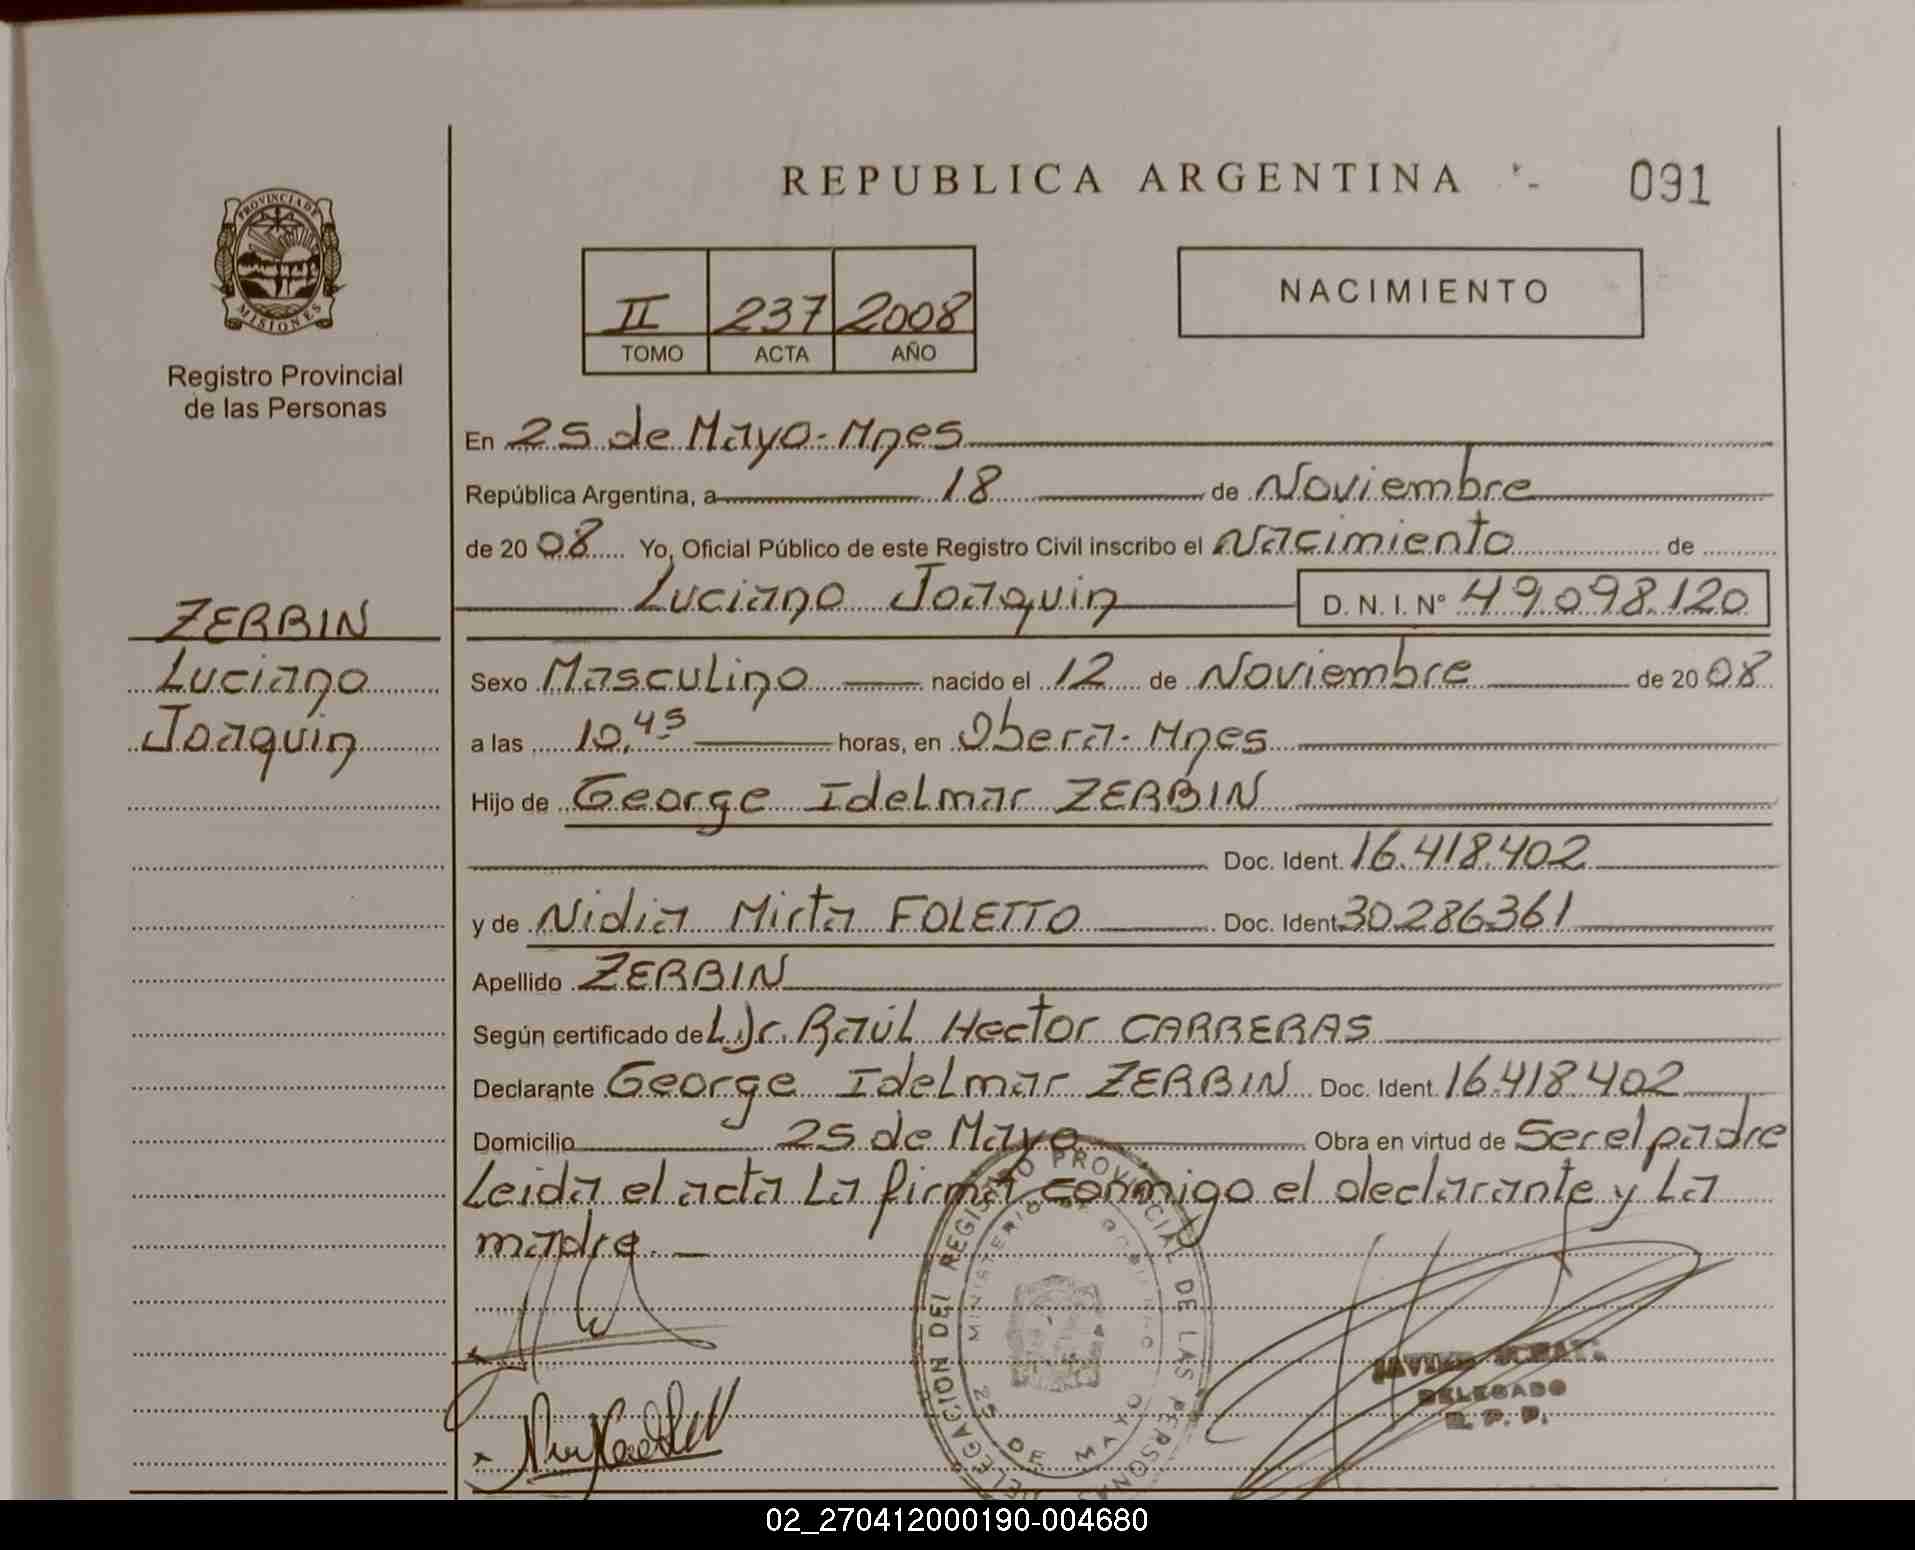 REPUBLICA ARGENTINA
091
PROVINCIA DE
MISIONES
Registro Provincial
de las Personas
II 237 2008
TOMO ACTA AÑO
NACIMIENTO
En 25 de Mayo-Mnes
República Argentina, a 18 de Noviembre
de 2008 Yo, Oficial Público de este Registro Civil inscribo el Nacimiento de
Luciano Joaquin D. N. I. Nº 49.098.120
ZERBIN
Luciano
Joaquin
Sexo Masculino nacido el 12 de Noviembre de 2008
a las 10,45 horas, en Obera-Mnes
Hijo de George Idelmar ZERBIN
Doc. Ident. 16.418.402
y de Nidia Mirta FOLETTO Doc. Ident. 30.286361
Apellido ZERBIN
Según certificado de L Dr. Raúl Hector CARRERAS
Declarante George Idelmar ZERBIN Doc. Ident. 16.418.402
Domicilio 25 de Mayo Obra en virtud de Ser el padre
Leida el acta La firma conmigo el declarante y La
madre.
DELEGACION DEL REGISTRO PROVINCIAL DE LAS PERSONAS
MINISTERIO DE GOBIERNO
25 DE MAYO
DELEGADO
R. P. P.
02_270412000190-004680